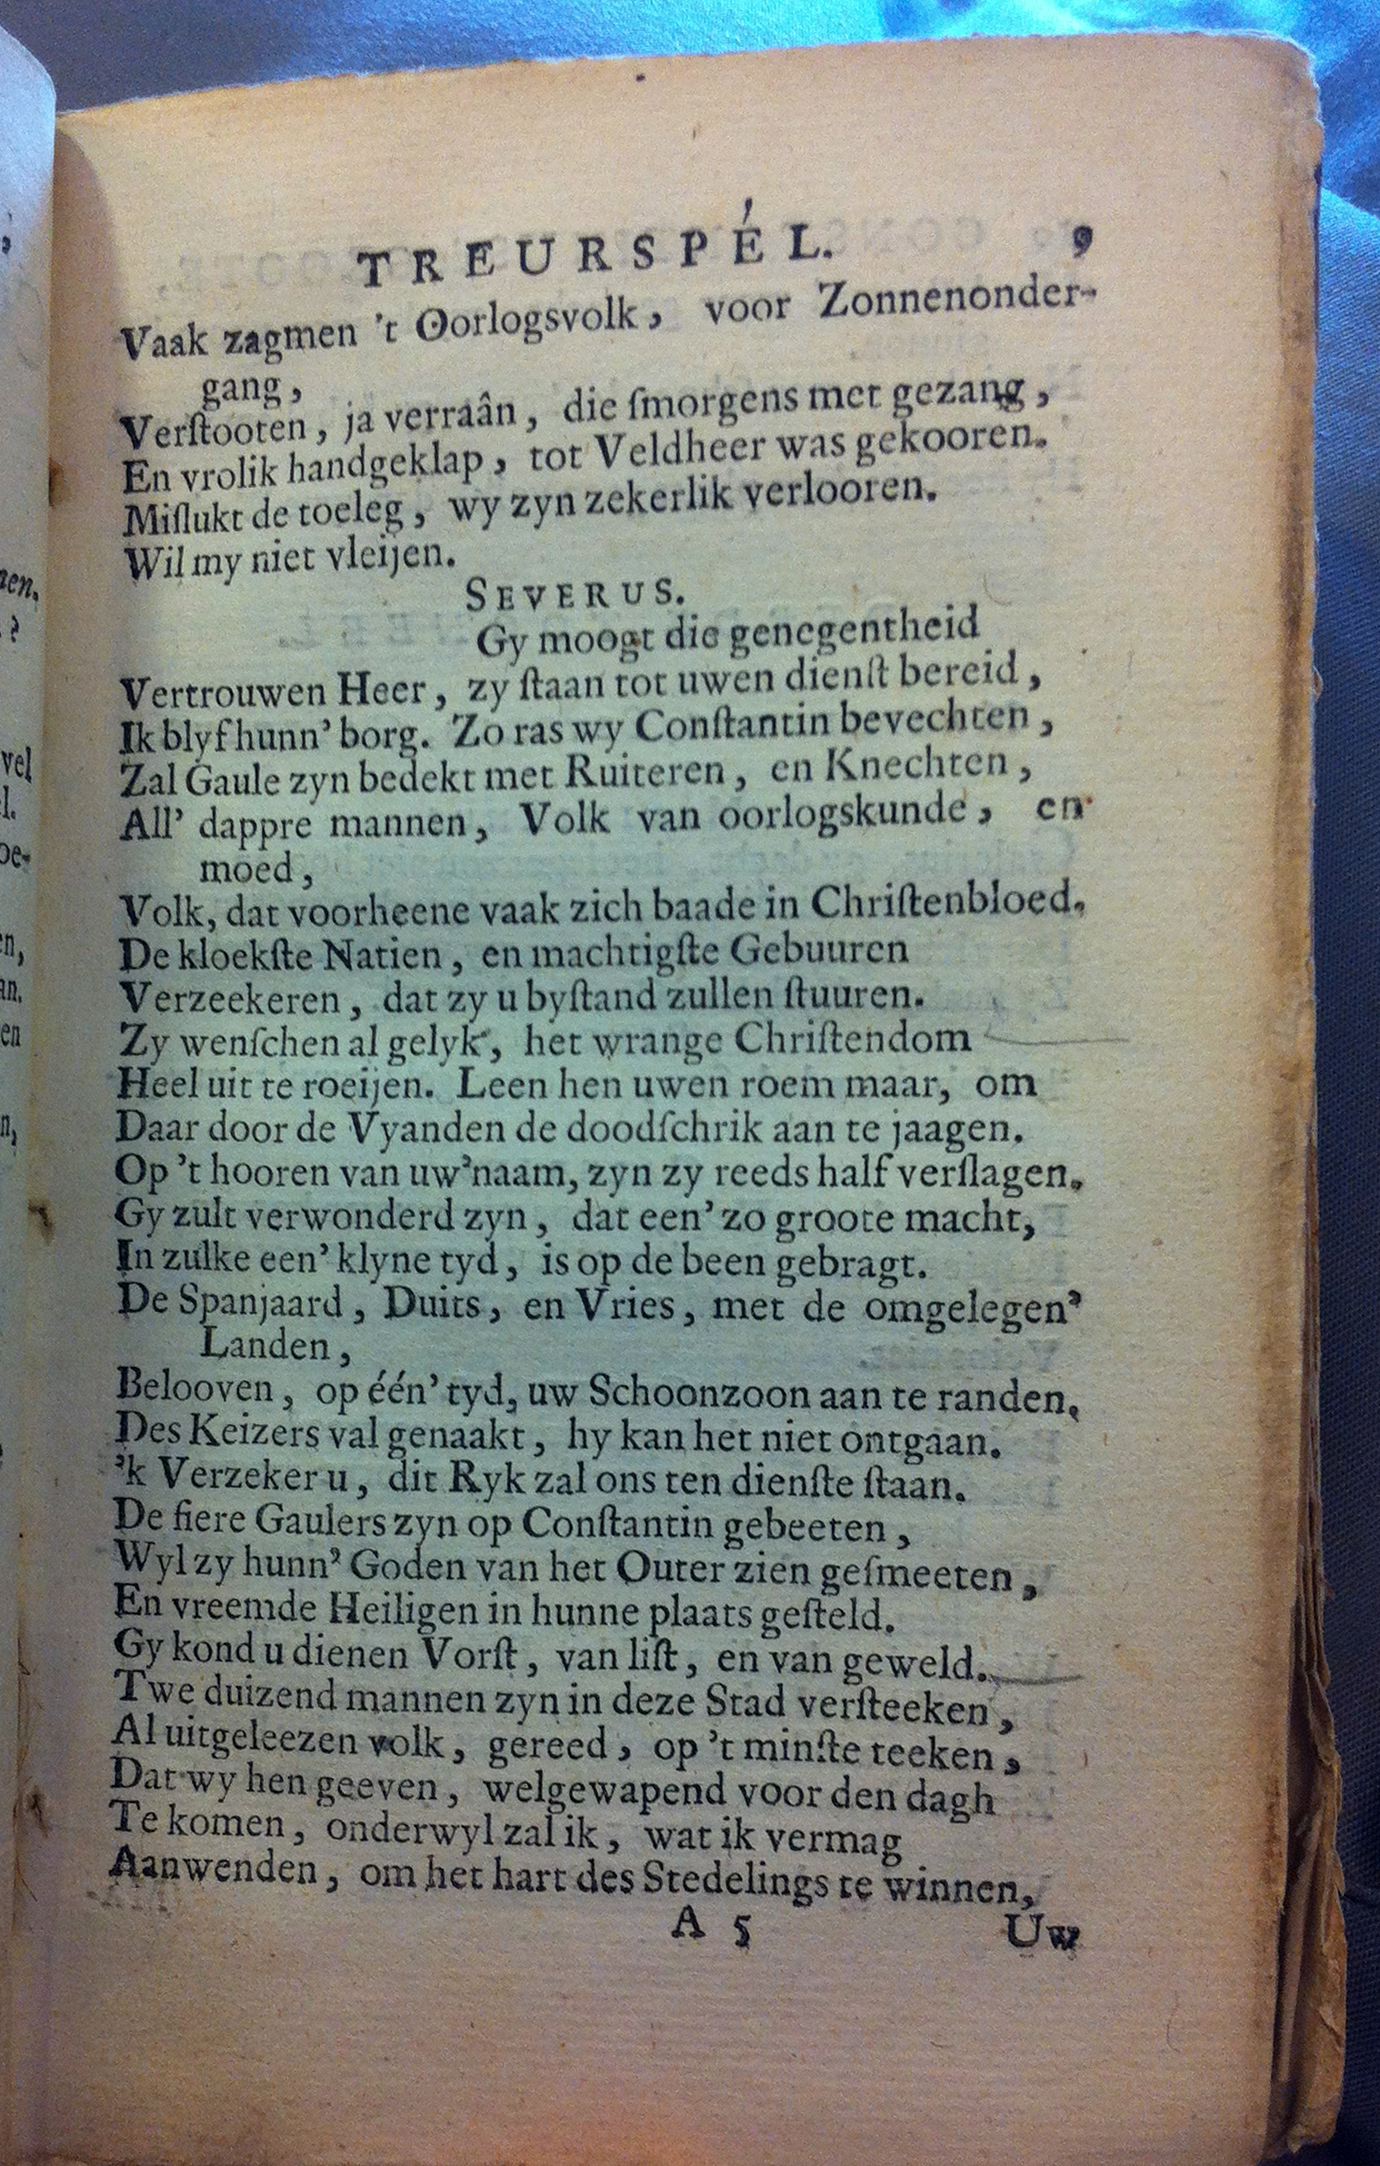 TREURSPÉL. 9
Vaak zagmen 't Oorlogsvolk, voor Zonnenonder-
gang,
Verſtooten, ja verraân, die ſmorgens met gezang,
En vrolik handgeklap, tot Veldheer was gekooren.
Miſlukt de toeleg, wy zyn zekerlik verlooren.
Wil my niet vleijen.
SEVERUS.
Gy moogt die genegentheid
Vertrouwen Heer, zy ſtaan tot uwen dienſt bereid,
Ik blyf hunn' borg. Zo ras wy Conſtantin bevechten,
Zal Gaule zyn bedekt met Ruiteren, en Knechten,
All' dappre mannen, Volk van oorlogskunde, en
moed,
Volk, dat voorheene vaak zich baade in Chriſtenbloed.
De kloekſte Natien, en machtigſte Gebuuren
Verzeekeren, dat zy u byſtand zullen ſtuuren.
Zy wenſchen al gelyk, het wrange Chriſtendom
Heel uit te roeijen. Leen hen uwen roem maar, om
Daar door de Vyanden de doodſchrik aan te jaagen.
Op 't hooren van uw'naam, zyn zy reeds half verſlagen.
Gy zult verwonderd zyn, dat een' zo groote macht,
In zulke een' klyne tyd, is op de been gebragt.
De Spanjaard, Duits, en Vries, met de omgelegen'
Landen,
Belooven, op één' tyd, uw Schoonzoon aan te randen,
Des Keizers val genaakt, hy kan het niet ontgaan.
'k Verzeker u, dit Ryk zal ons ten dienſte ſtaan.
De fiere Gaulers zyn op Conſtantin gebeeten,
Wyl zy hunn' Goden van het Outer zien geſmeeten,
En vreemde Heiligen in hunne plaats geſteld.
Gy kond u dienen Vorſt, van liſt, en van geweld.
Twe duizend mannen zyn in deze Stad verſteeken,
Al uitgeleezen volk, gereed, op 't minſte teeken,
Dat wy hen geeven, welgewapend voor den dagh
Te komen, onderwyl zal ik, wat ik vermag
Aanwenden, om het hart des Stedelings te winnen,
A 5 Uw